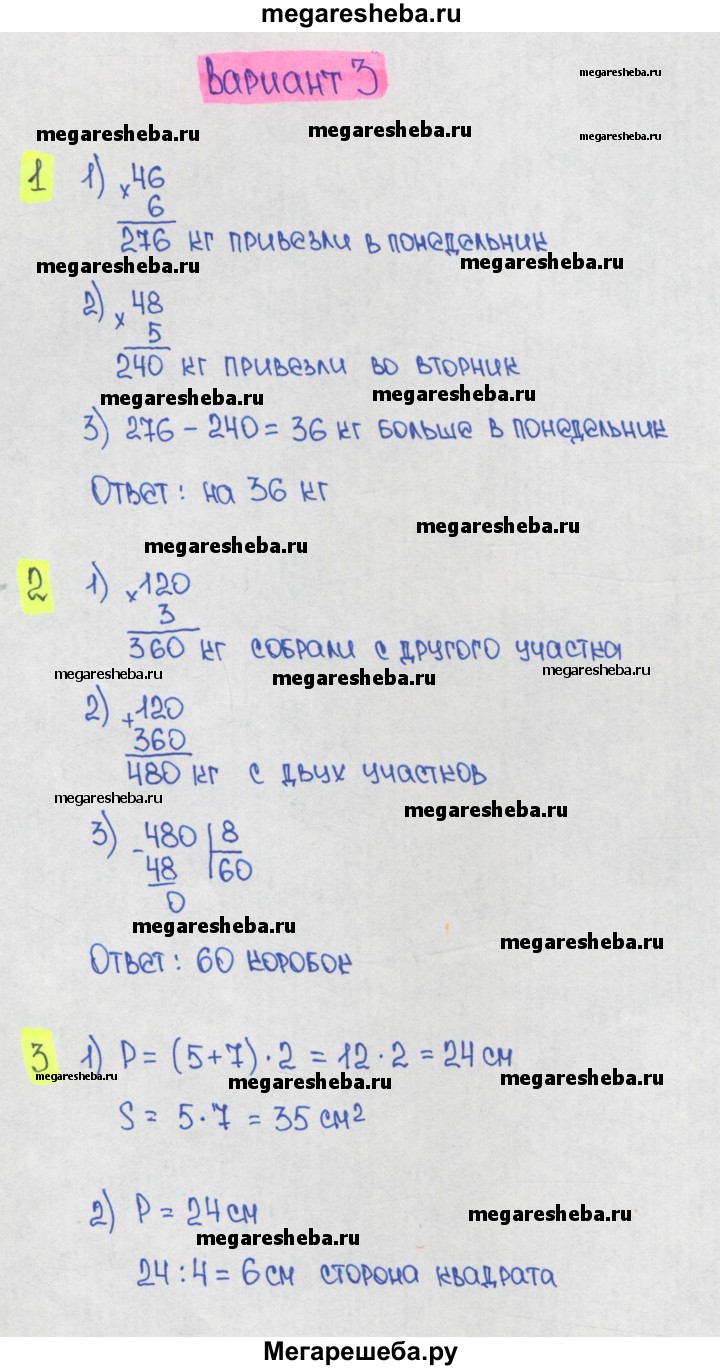 megaresheba.ru
вариант 3
megaresheba.ru
megaresheba.ru
megaresheba.ru
megaresheba.ru
1 1) × 46
6
276 кг привезли в понедельник
megaresheba.ru
megaresheba.ru
2) × 48
5
240 кг привезли во вторник
megaresheba.ru
megaresheba.ru
3) 276 - 240 = 36 кг больше в понедельник
Ответ: на 36 кг
megaresheba.ru
megaresheba.ru
2 1) × 120
3
360 кг собрали с другого участка
megaresheba.ru
megaresheba.ru
megaresheba.ru
2) + 120
360
480 кг с двух участков
megaresheba.ru
megaresheba.ru
3) - 480 | 8
48 | 60
0
megaresheba.ru
megaresheba.ru
Ответ: 60 коробок
3 1) P = (5+7) · 2 = 12 · 2 = 24 см
megaresheba.ru
megaresheba.ru
megaresheba.ru
S = 5 · 7 = 35 см²
2) P = 24 см
megaresheba.ru
megaresheba.ru
24 : 4 = 6 см сторона квадрата
Мегарешеба.ру